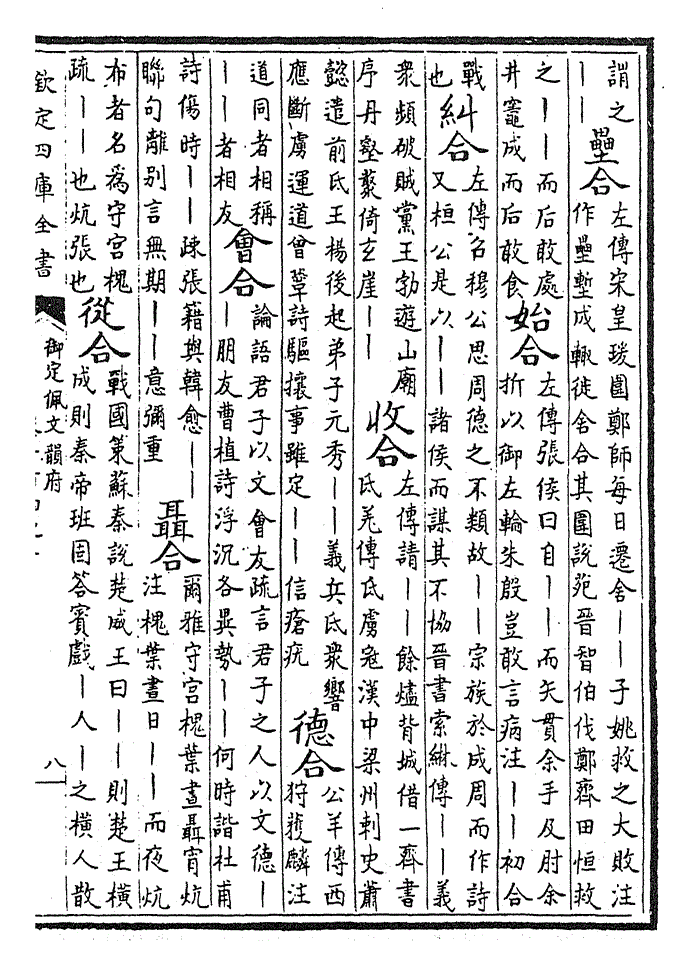 謂之
——
壘合
左傳宋皇瑗圍鄭師每日遷舍——子姚救之大敗注
作壘塹成輒徙舍合其圍說苑晉智伯伐鄭齊田恒救
之——而后敢處
井竈成而后敢食
始合
左傳張侯曰自——而矢貫余手及肘余
折以御左輪朱殷豈敢言病注——初合
戰
也
糾合
左傳召穆公思周德之不類故——宗族於成周而作詩
又桓公是以——諸侯而謀其不協晉書索綝傳——義
衆頻破賊黨王勃遊山廟
序丹壑藂倚玄崖——
收合
左傳請——餘燼背城借一齊書
氐羌傳氐虜寇漢中梁州刺史蕭
懿遣前氏王楊後起弟子元秀——義兵氐衆響
應斷虜運道曾鞏詩驅攘事雖定——信瘡疣
德合
公羊傳西
狩獲麟注
道同者相稱
——者相友
會合
論語君子以文會友疏言君子之人以文德—
—朋友曹植詩浮沉各異勢——何時諧杜甫
詩傷時——疎張籍與韓愈——
聯句離別言無期——意彌重
聶合
爾雅守宮槐葉晝聶宵炕
注槐葉晝日——而夜炕
布者名為守宮槐
疏——也炕張也
從合
戰國策蘇秦說楚威王曰——則楚王橫
成則秦帝班固答賓戲—人—之橫人散
欽定四庫全書
御定佩文韻府
八